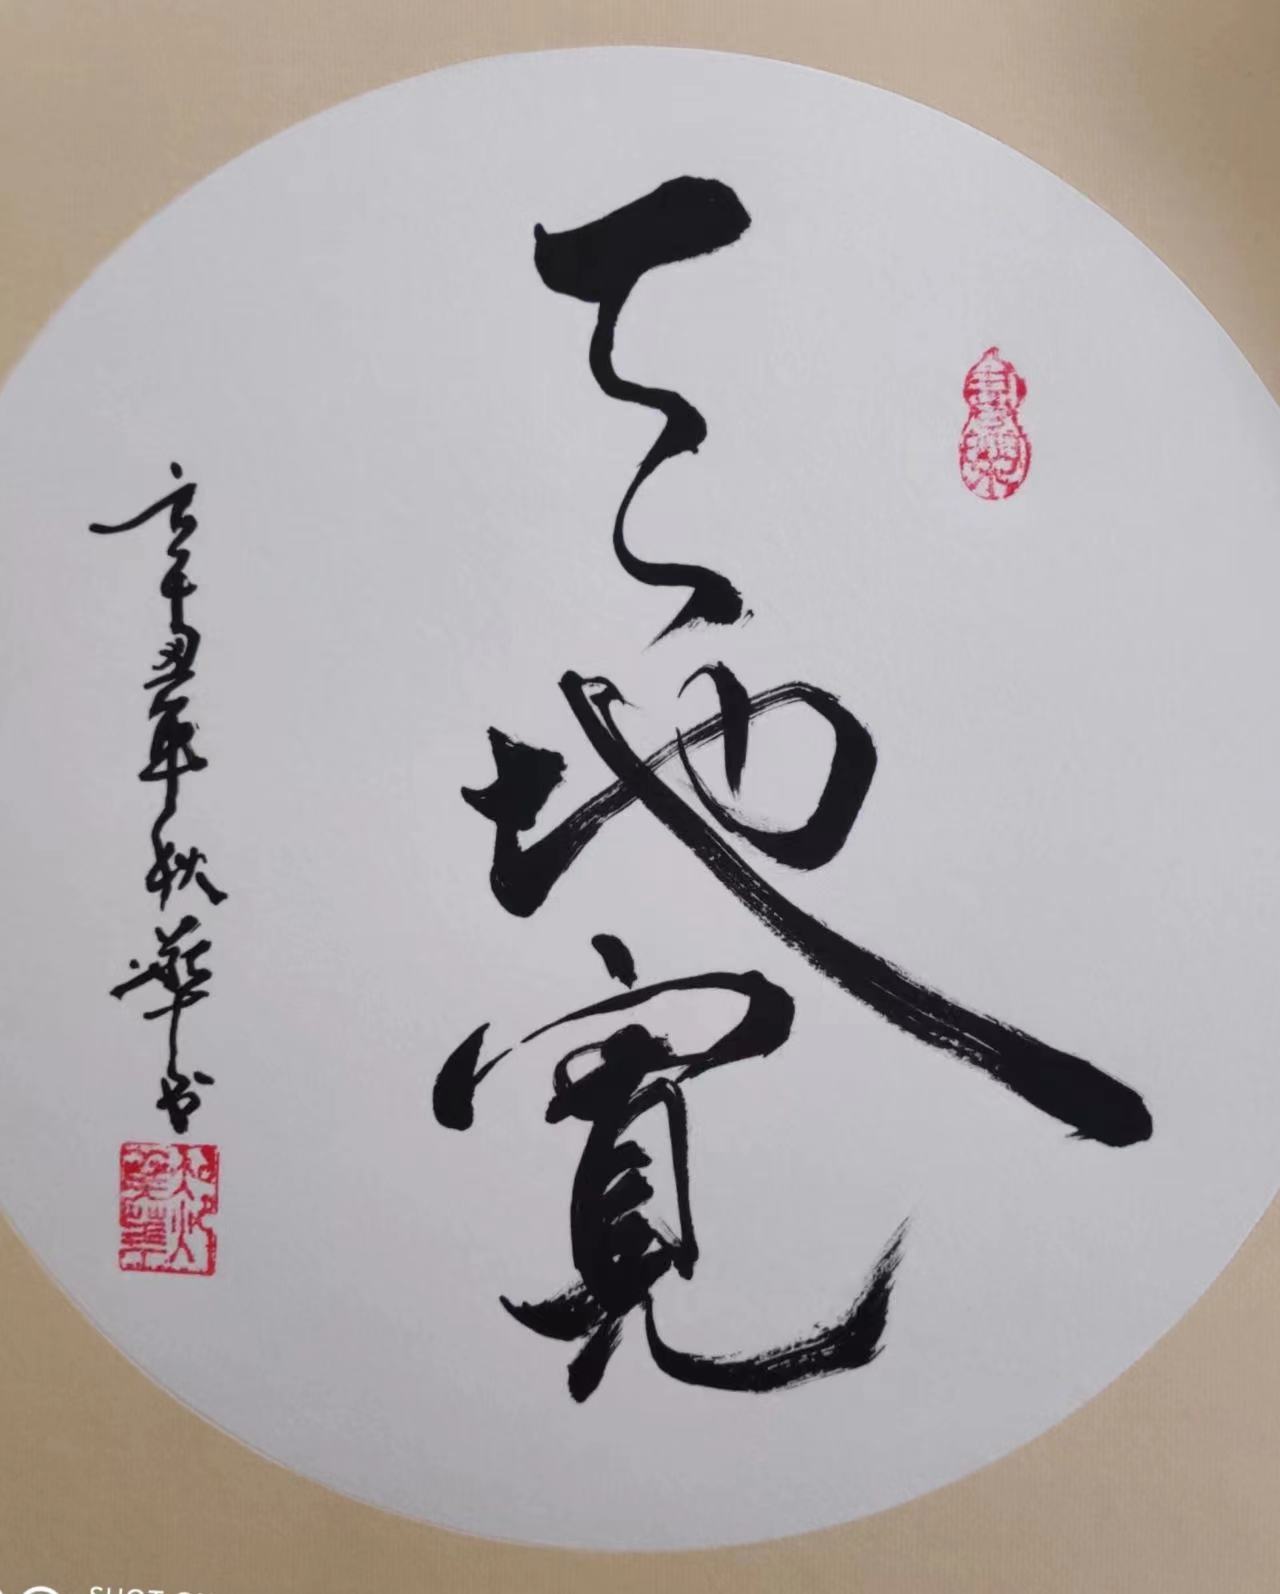 天地寬
辛丑年秋華书
SHOT